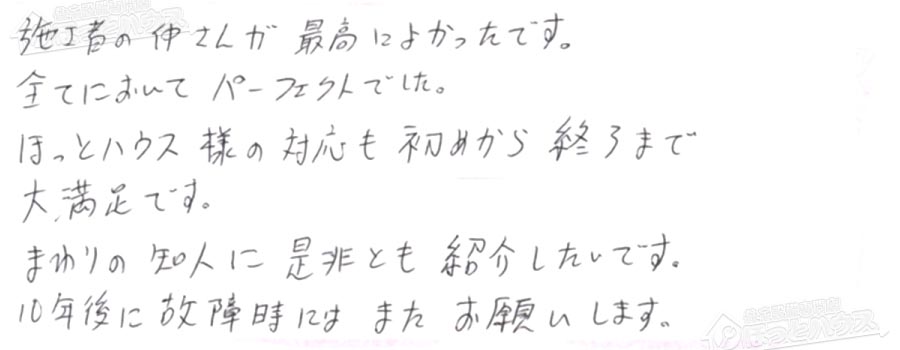 施工者の仲さんが 最高によかったです。
全てにおいて パーフェクトでした。
ほっとハウス 様の 対応も 初めから 終了まで
大満足です。
まわりの 知人に 是非とも 紹介したいです。
10年後に 故障時には また お願いします。
ほっとハウス
ほっとハウス